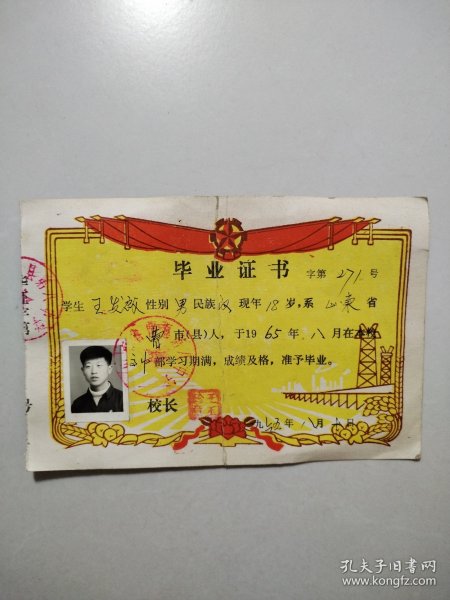 毕业证书 字第271号
学生王发成性别男民族汉现年18岁,系山东省
费市(县)人,于1965年八月在本校
高中部学习期满,成绩及格,准予毕业。
校长
一九六五年八月 日
孔夫子旧书网
www.kongfz.com